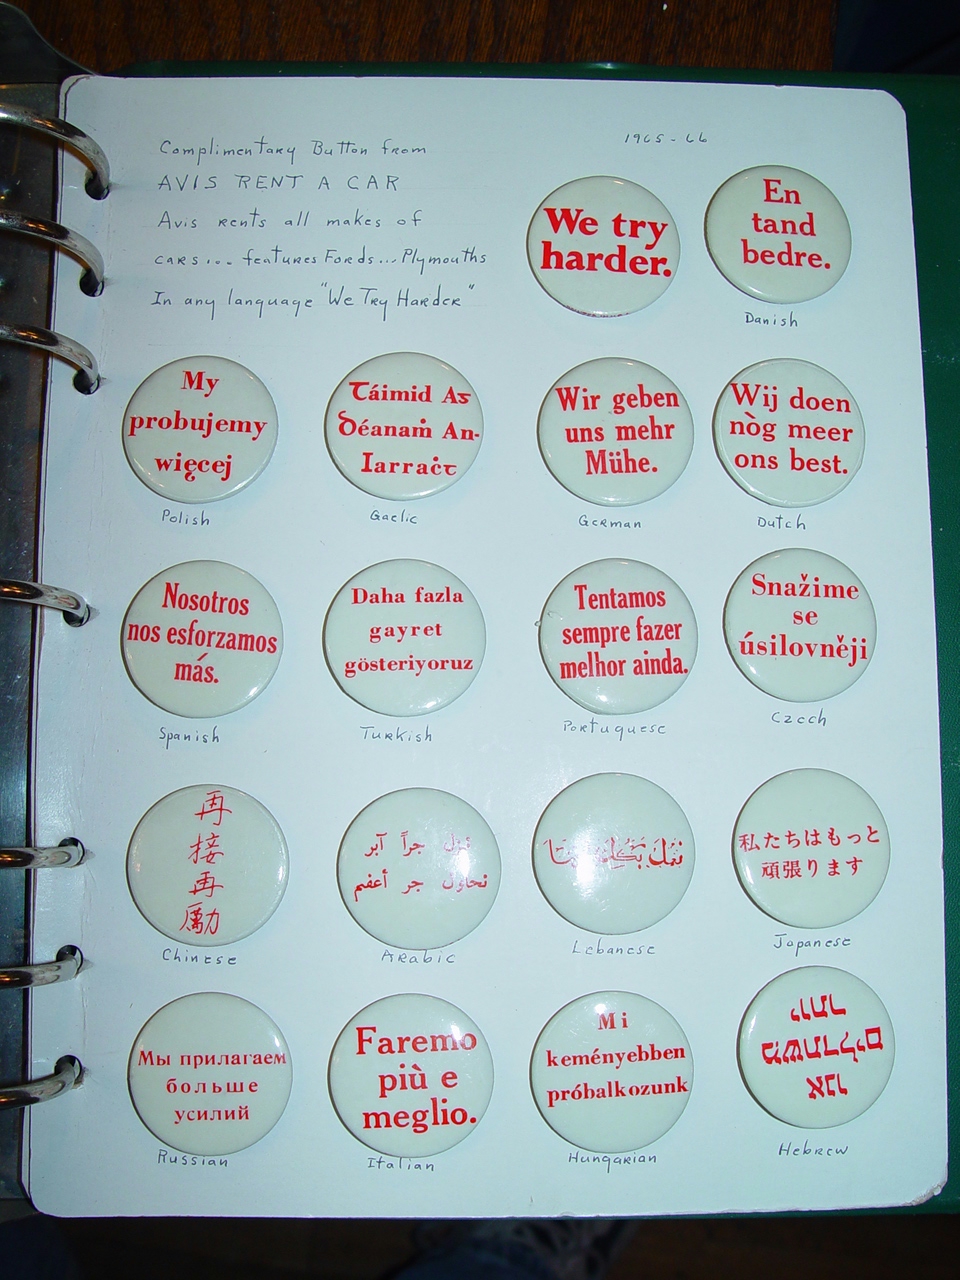 Complimentary Button from
AVIS RENT A CAR
Avis rents all makes of
cars... features Fords... Plymouths
In any language "We Try Harder"
1965-66
We try
harder.
En
tand
bedre.
Danish
My
probujemy
więcej
Polish
Táimid As
Déanaṁ An-
Iarraċt
Gaelic
Wir geben
uns mehr
Mühe.
German
Wij doen
nòg meer
ons best.
Dutch
Nosotros
nos esforzamos
más.
Spanish
Daha fazla
gayret
gösteriyoruz
Turkish
Tentamos
sempre fazer
melhor ainda.
Portuguese
Snažime
se
úsilovněji
Czech
再
接
再
励
Chinese
جراً آبر
نحاول جر أعفم
Arabic
Lebanese
私たちはもっと
頑張ります
Japanese
Мы прилагаем
больше
усилий
Russian
Faremo
più e
meglio.
Italian
Mi
keményebben
próbalkozunk
Hungarian
אנו
משתדלים
יותר
Hebrew